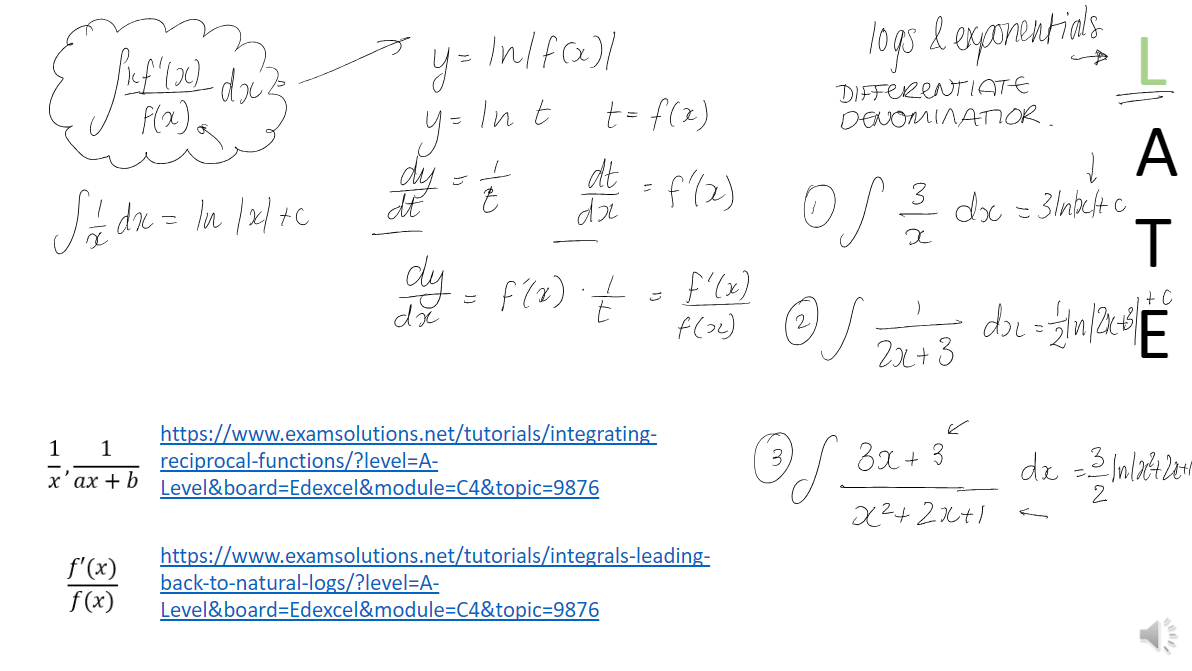 ∫ kf'(x)/f(x) dx =
y = ln|f(x)|
y = ln t    t = f(x)
dy/dt = 1/t    dt/dx = f'(x)
dy/dx = f'(x) · 1/t = f'(x)/f(x)
∫ 1/x dx = ln |x| + c
logs & exponentials
DIFFERENTIATE
DENOMINATIOR.
L
A
T
E
① ∫ 3/x dx = 3ln|x| + c
② ∫ 1/(2x+3) dx = 1/2 ln|2x+3| + c
③ ∫ (3x+3)/(x²+2x+1) dx = 3/2 ln|x²+2x+1
1/x, 1/(ax + b)
https://www.examsolutions.net/tutorials/integrating-
reciprocal-functions/?level=A-
Level&board=Edexcel&module=C4&topic=9876
f'(x)/f(x)
https://www.examsolutions.net/tutorials/integrals-leading-
back-to-natural-logs/?level=A-
Level&board=Edexcel&module=C4&topic=9876